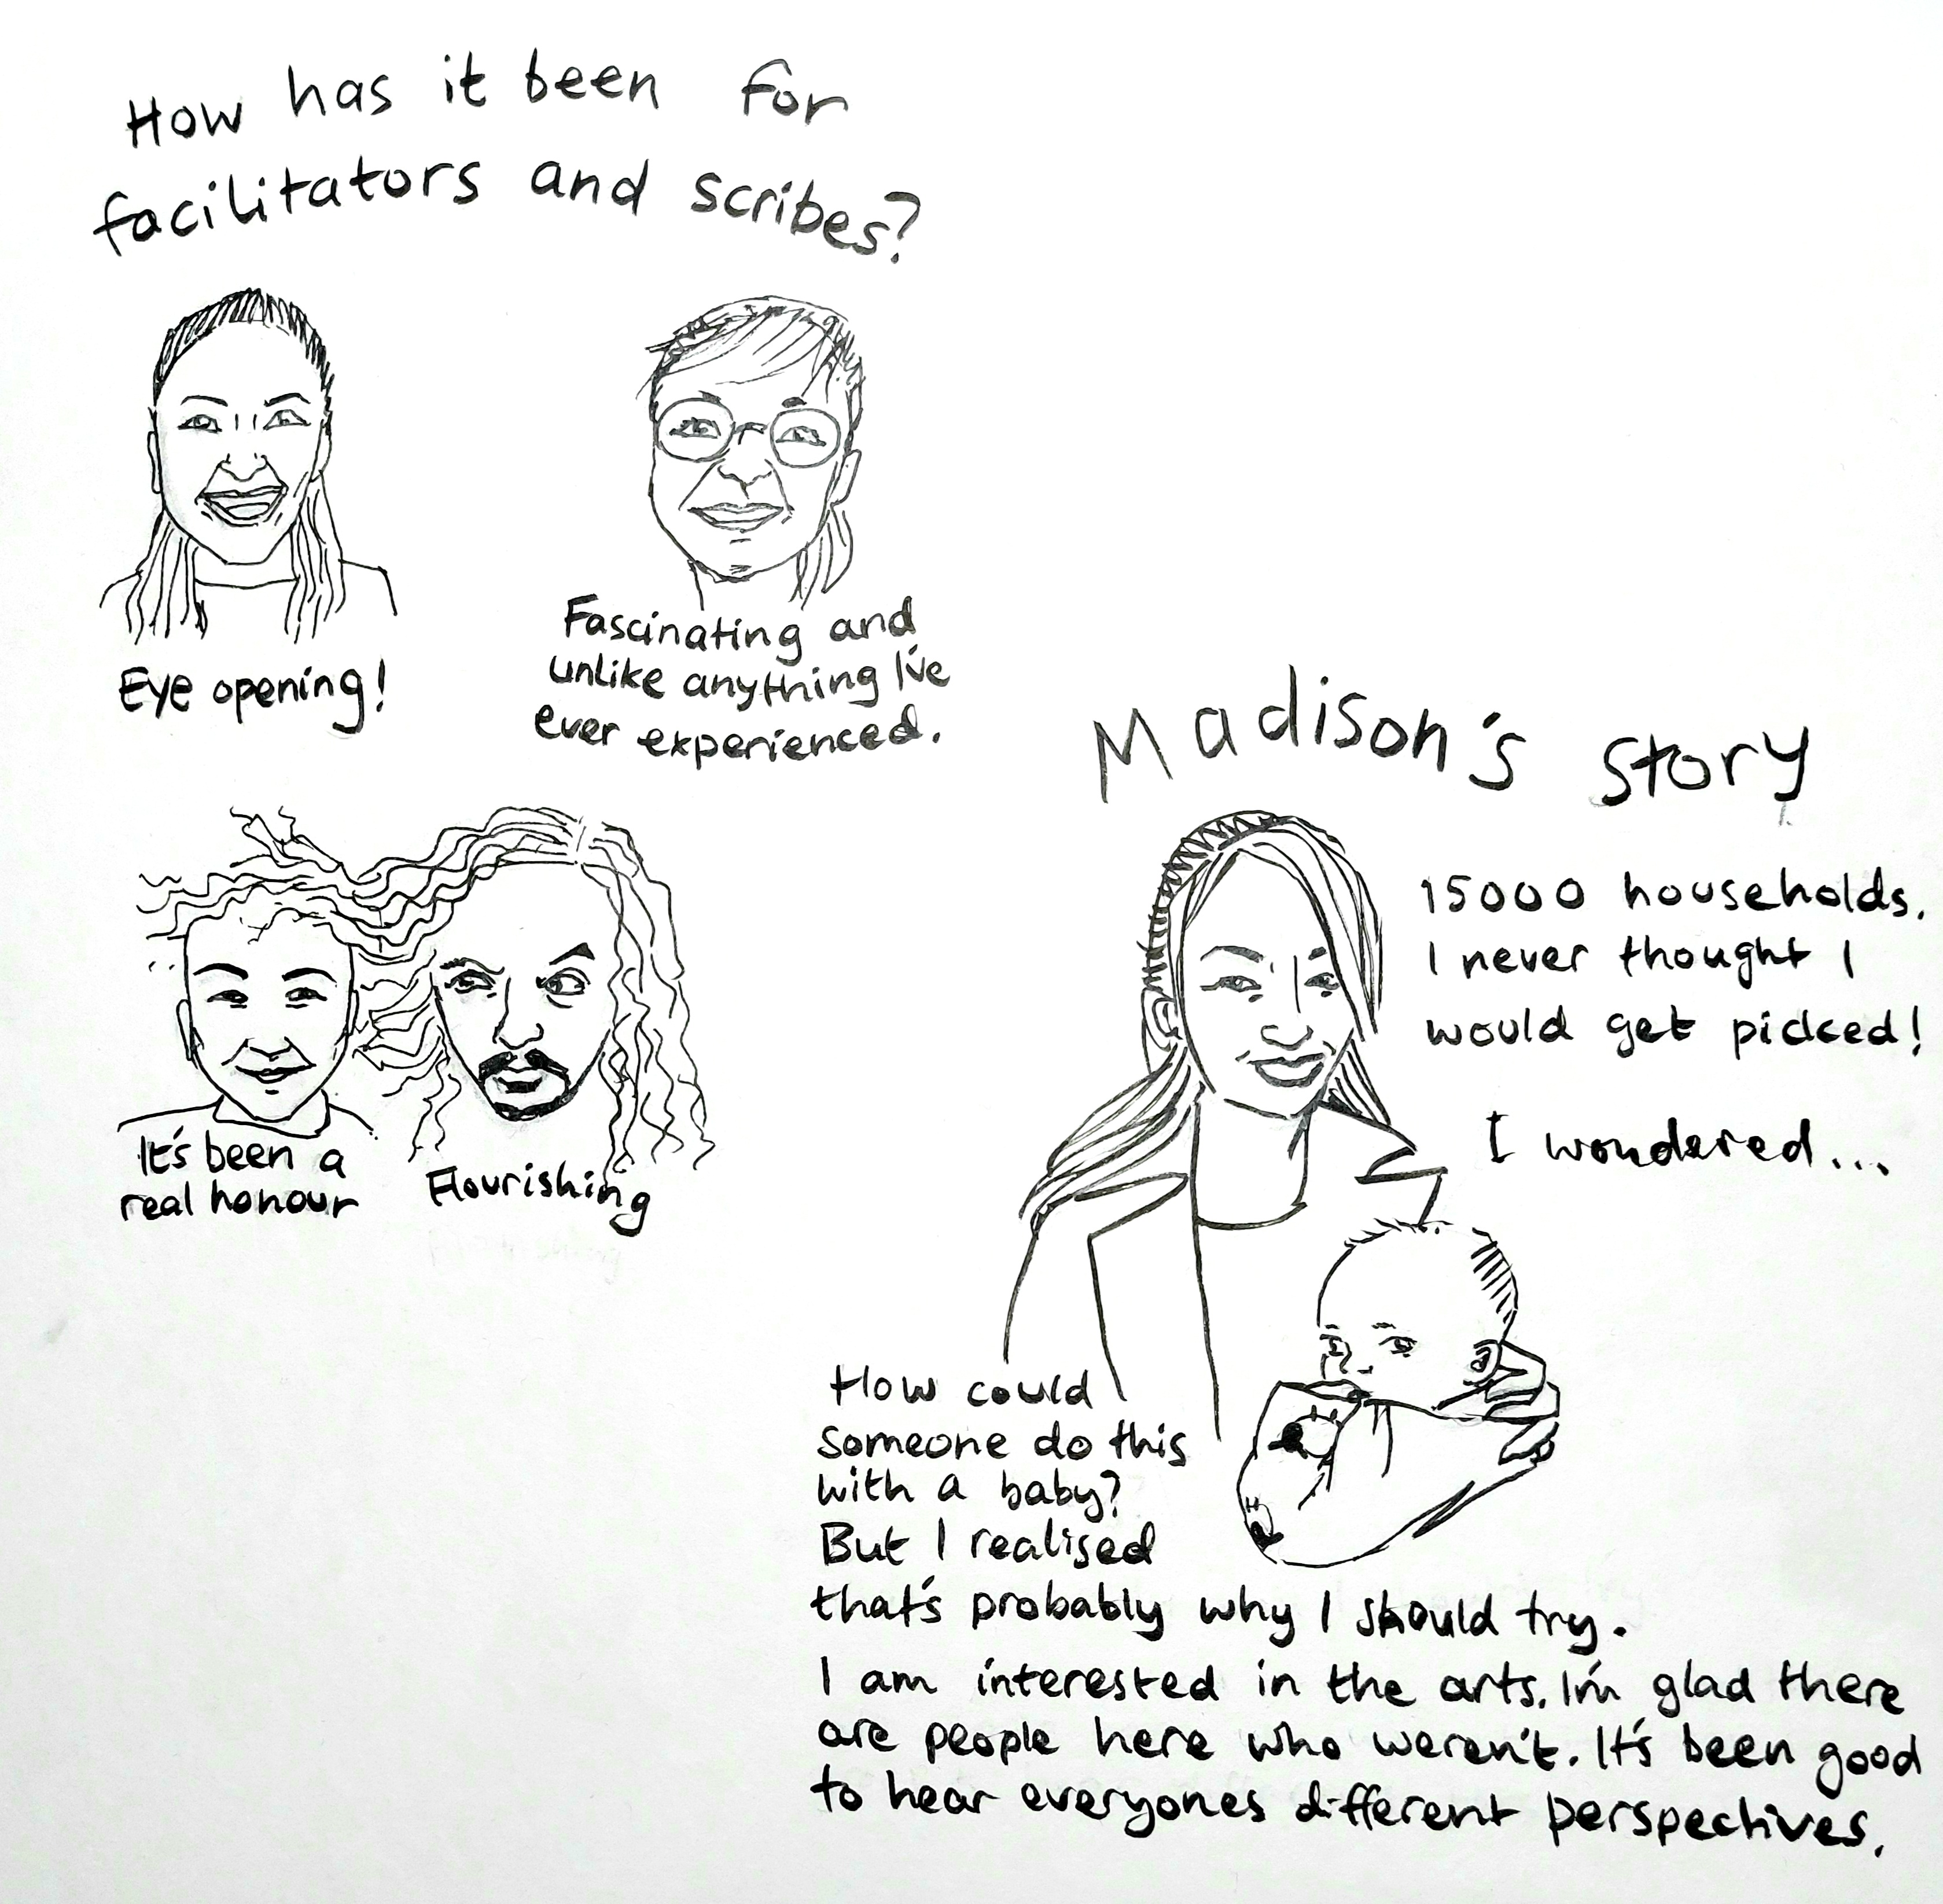 How has it been for
facilitators and scribes?
Eye opening!
Fascinating and
unlike anything I've
ever experienced.
It's been a
real honour
Flourishing
Madison's story
15000 households.
I never thought I
would get picked!
I wondered...
How could
someone do this
with a baby?
But I realised
that's probably why I should try.
I am interested in the arts. I'm glad there
are people here who weren't. It's been good
to hear everyones different perspectives.